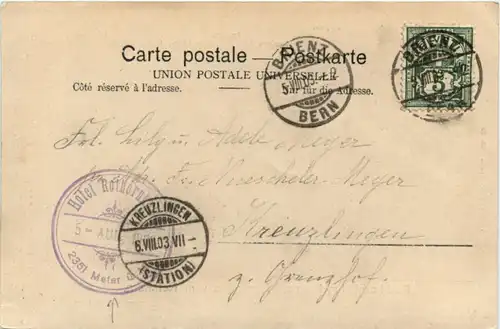 Carte postale — Postkarte
UNION POSTALE UNIVERSELLE
Côté réservé à l'adresse.
Nur für die Adresse.
BRIENZ
5.VIII.03.
BERN
BRIENZ
5
Frl. Lily u. Adele Meyer
Fr. Meyer
Kreuzlingen
z. Grenzhof.
Hôtel Rothorn
5 - AU
2351 Meter
KREUZLINGEN
6.VIII.03.VII
(STATION)